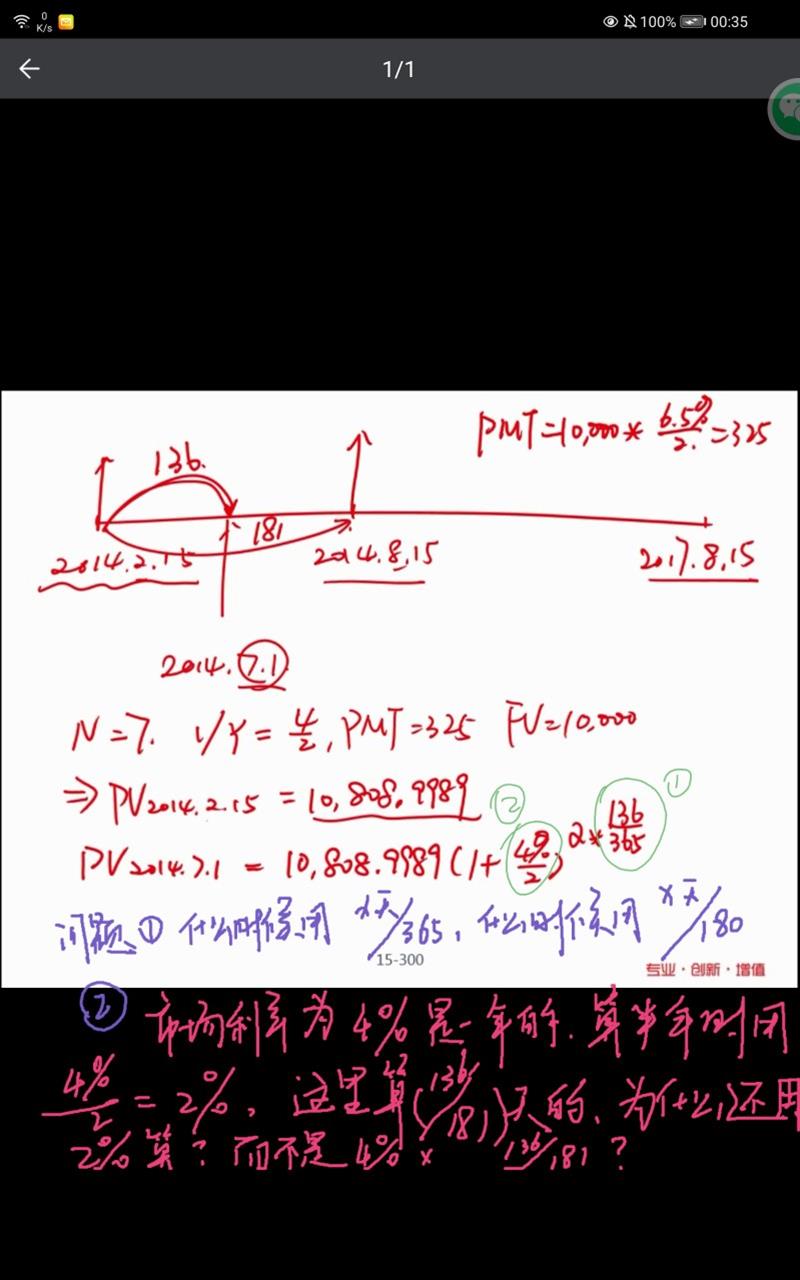 0
K/s
100%
00:35
1/1
PMT=10,000* 6.5%/2=325
136.
181
2014.2.15
2014.8.15
2017.8.15
2014.7.1
N=7. I/Y=4/2, PMT=325 FV=10,000
⇒PV2014.2.15 = 10,808.9989
② ①
PV2014.7.1 = 10,808.9989(1+4%/2)2*136/365
问题① 什么时候用 x天/365, 什么时候用 x天/180
15-300
专业·创新·增值
② 市场利率为4%是一年的.算半年时用
4%/2=2%, 这里算(136/181)天的,为什么还用
2%算?而不是4%×136/181?